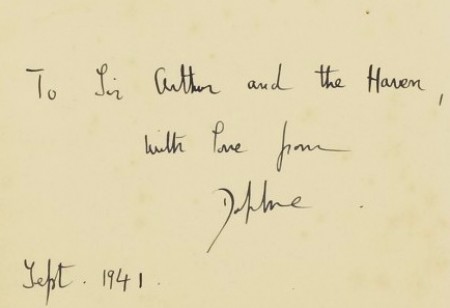 To Sir Arthur and the Haven,
with love from
Daphne.
Sept. 1941.